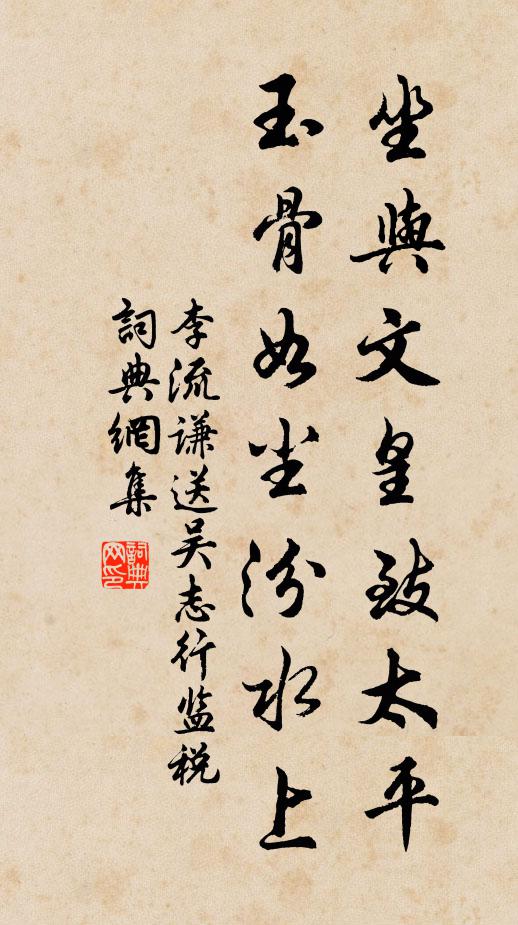 坐與文皇致太平
玉骨如尘汾水上
李流谦送吴志行监税
詞典網集
詞典网印